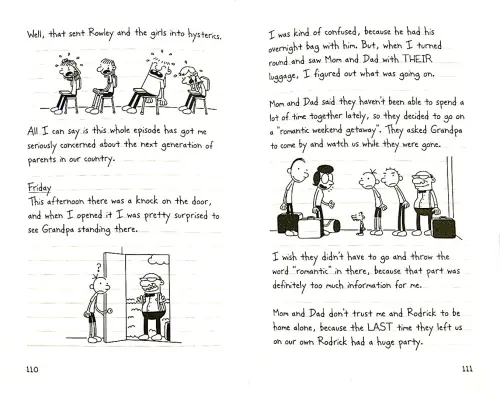 Well, that sent Rowley and the girls into hysterics.
All I can say is this whole episode has got me
seriously concerned about the next generation of
parents in our country.
Friday
This afternoon there was a knock on the door,
and when I opened it I was pretty surprised to
see Grandpa standing there.
?
110
I was kind of confused, because he had his
overnight bag with him. But, when I turned
round and saw Mom and Dad with THEIR
luggage, I figured out what was going on.
Mom and Dad said they haven't been able to spend a
lot of time together lately, so they decided to go on
a "romantic weekend getaway". They asked Grandpa
to come by and watch us while they were gone.
I wish they didn't have to go and throw the
word "romantic" in there, because that part was
definitely too much information for me.
Mom and Dad don't trust me and Rodrick to be
home alone, because the LAST time they left us
on our own Rodrick had a huge party.
111